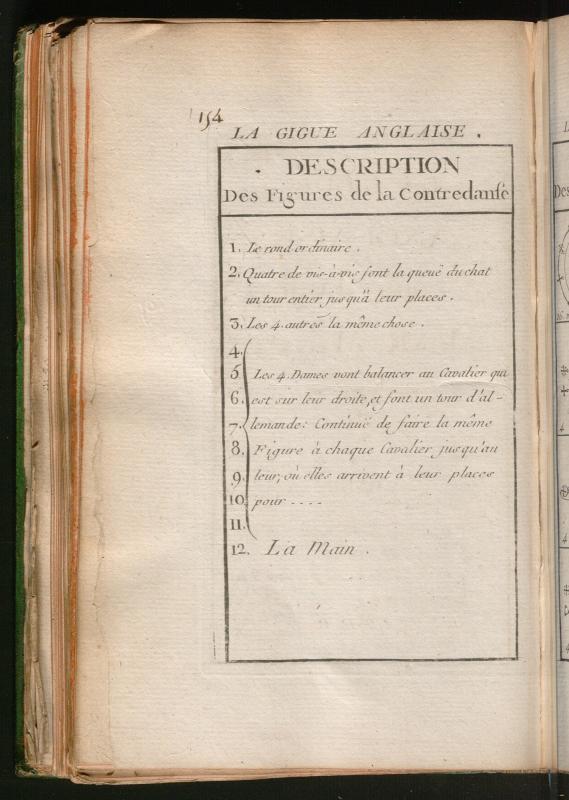 154
LA GIGUE ANGLAISE.
DESCRIPTION
Des Figures de la Contredanse
1. Le rond ordinaire.
2. Quatre de vis-à-vis font la queuë du chat
un tour entier jusqu'à leur places.
3. Les 4. autres la même chose.
4.
5 Les 4. Dames vont balancer au Cavalier qui
6. est sur leur droite, et font un tour d'al-
7. lemande: Continuë de faire la même
8. Figure à chaque Cavalier jusqu'au
9. leur, où elles arrivent à leur places
10 pour ----
11.
12. La Main.